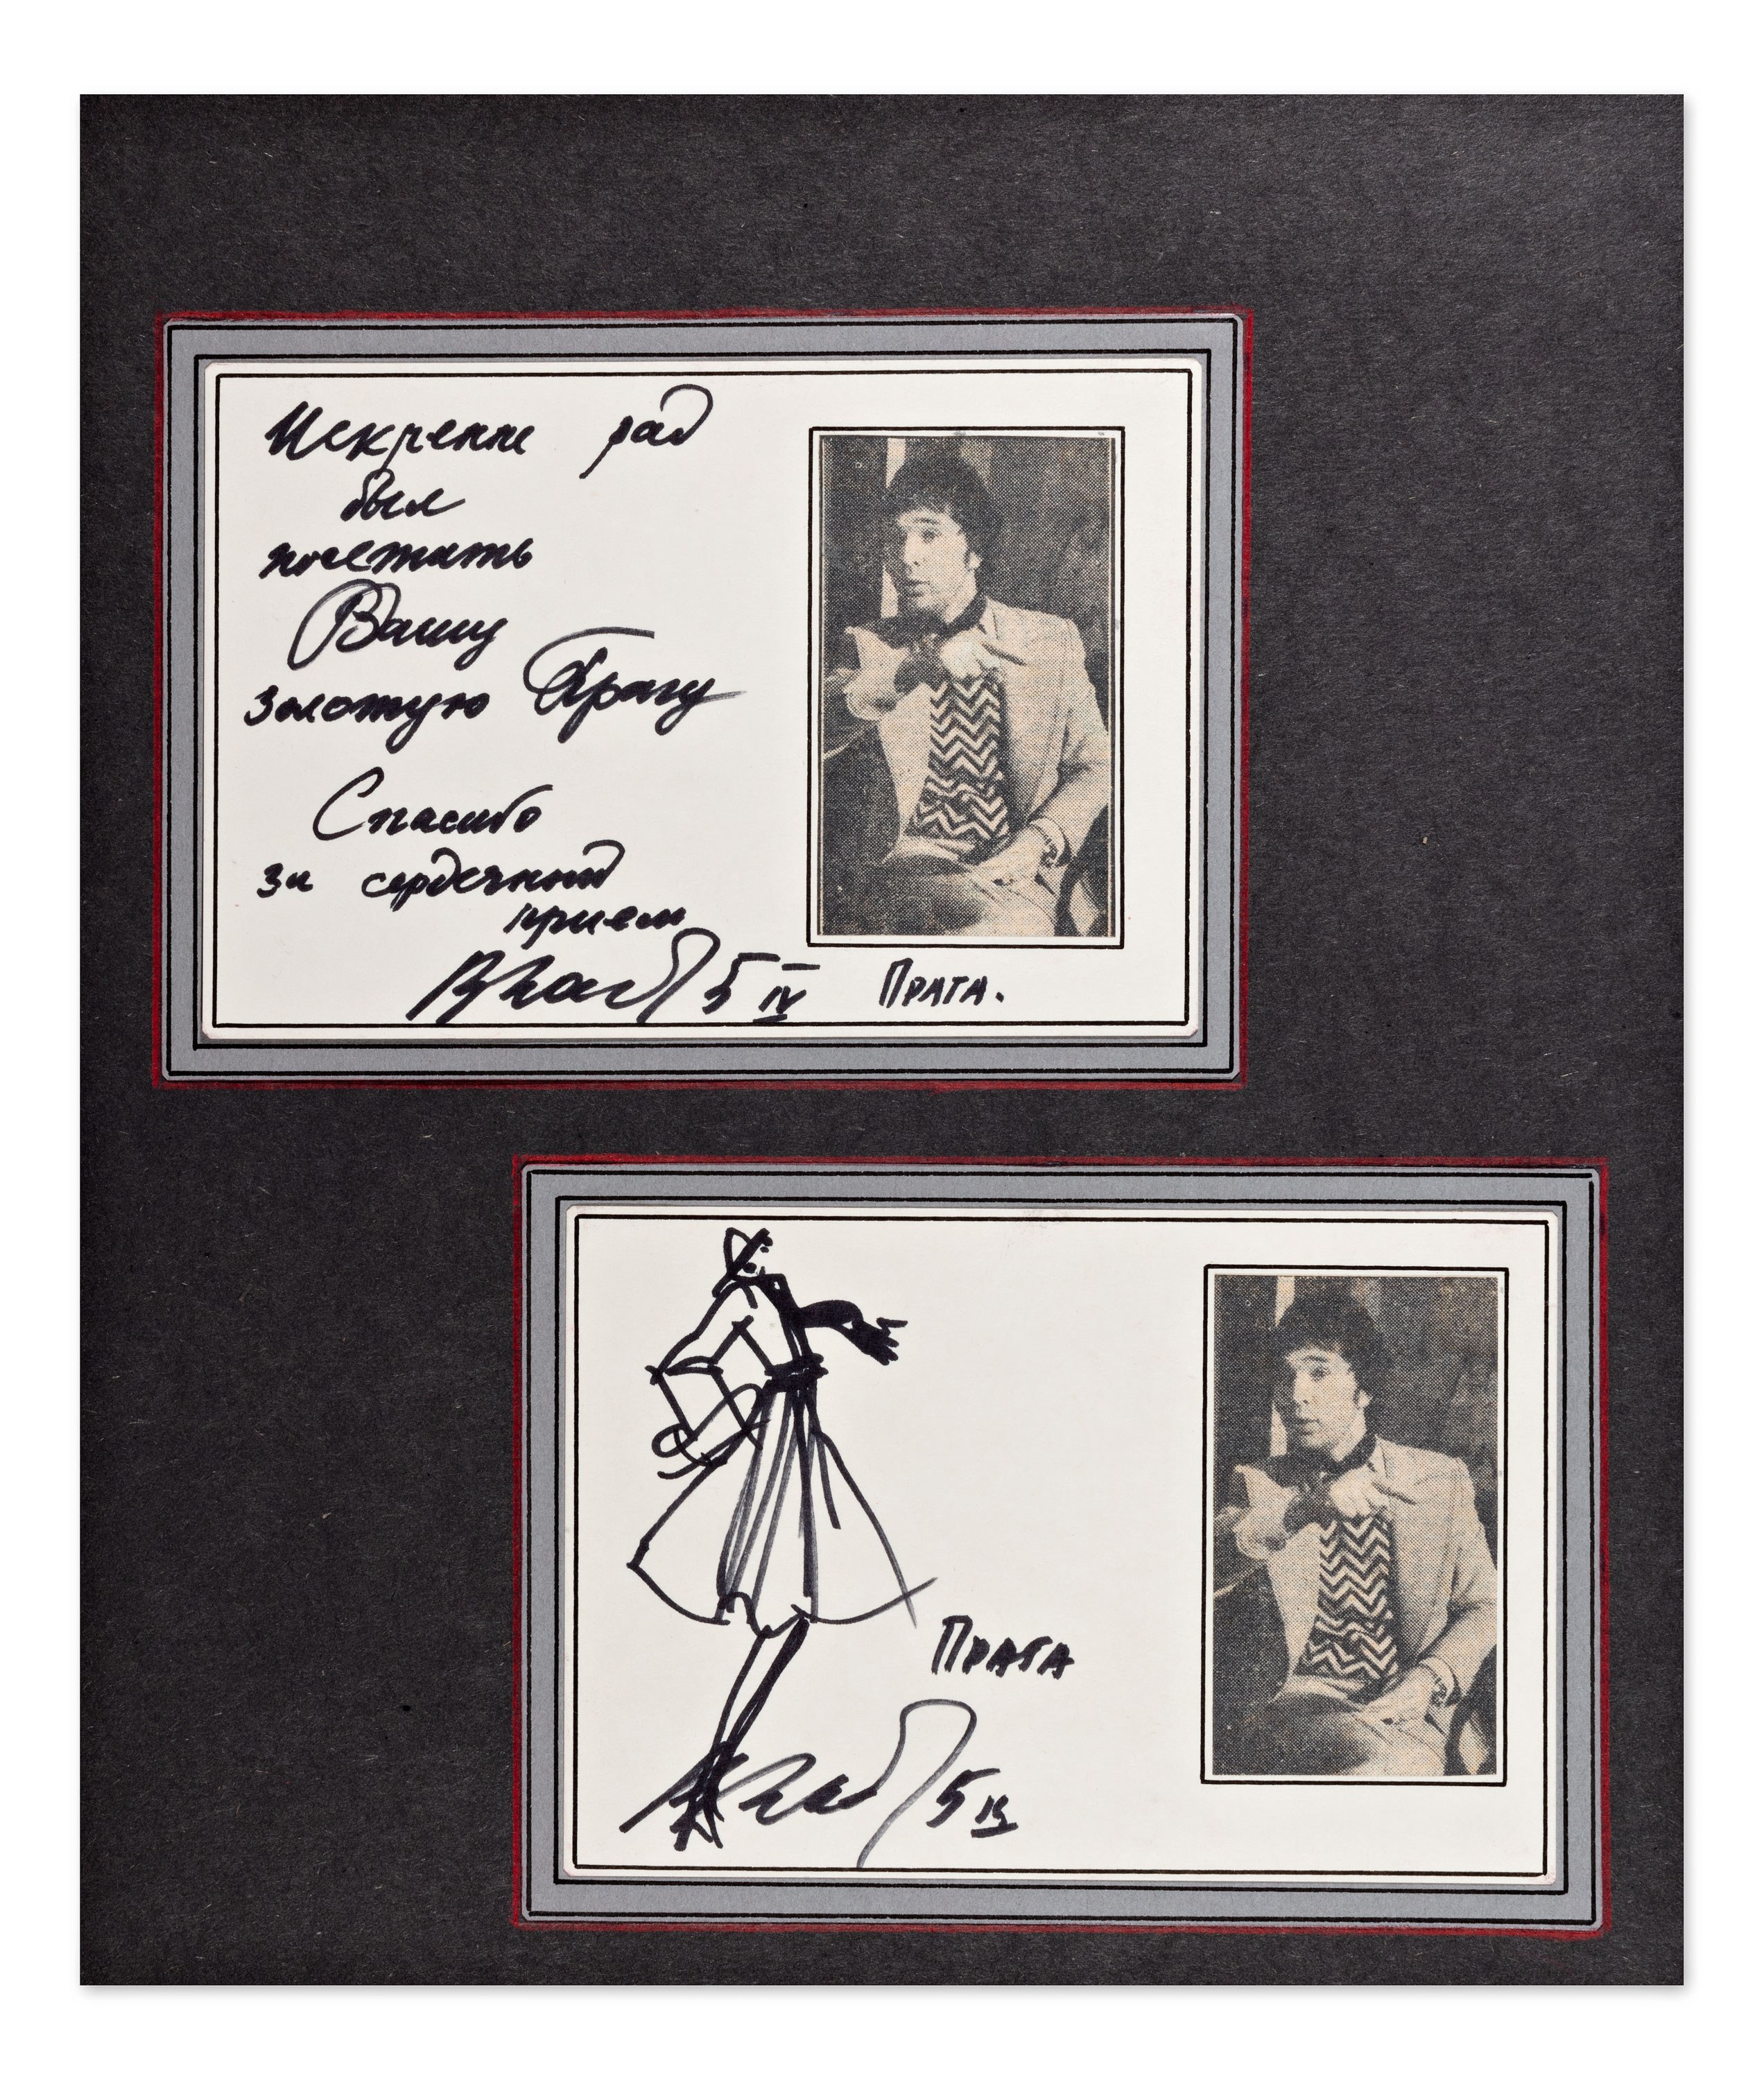 Искренне рад
был
посетить
Вашу
золотую Прагу
Спасибо
за сердечный
прием
5 IV Прага.
Прага
5 IV